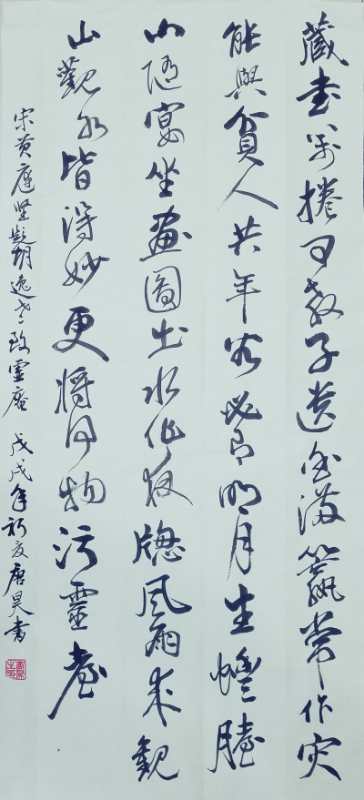 藏書万捲可教子遗金满籯常作灾
能與貧人共年谷必有明月生蜯胎
山随宴坐畫圖出水作夜牕風雨来觀
山觀水皆得妙更將何物污靈臺
宋黄庭坚题胡逸老致靈庵 戊戌年初夏唐昊書